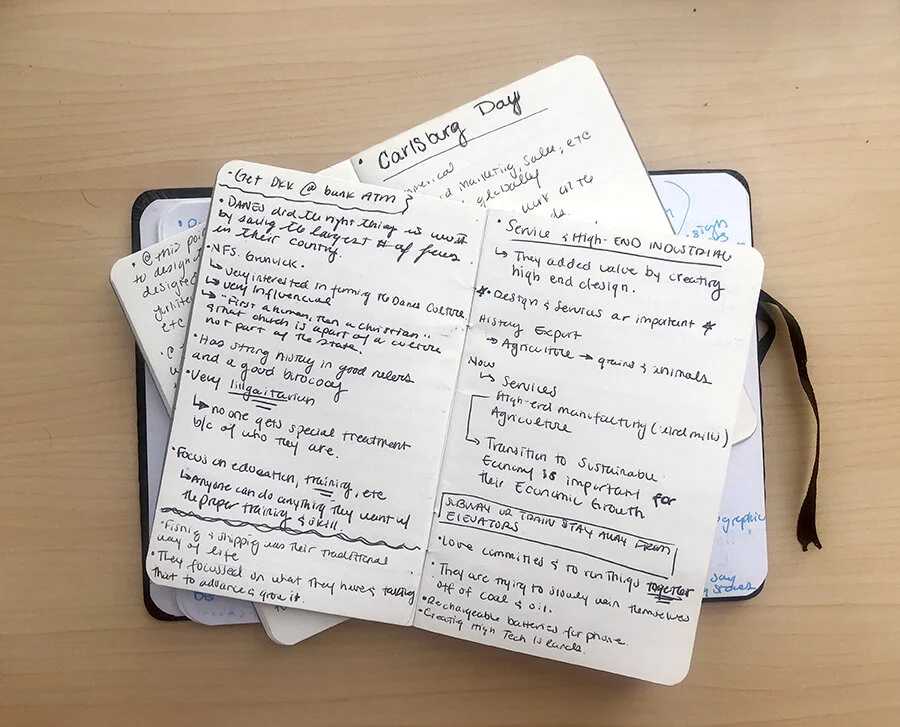 • Carlsburg Day
and marketing, Sales, etc
globally
work on the
• Get DKK @ bank ATM
• DANES did the right thing in WWII
by saving the largest # of Jews
in their country.
• NFS. Grunvick.
↳ Very interested in forming the Danes Culture
↳ Very influencial
↳ "First a human, than a christian"
great church is apart of a culture
not part of the State.
• Has strong history in good rulers
and a good
• Very
↳ no one gets special treatment
b/c of who they are.
• Focus on education, training, etc
↳ Anyone can do anything they want w/
the proper training & skill
• Fishing & shipping was their traditional
way of life
• They focussed on what they have & taking
that to advance & grow it.
• Service & High-END INDUSTRIAL
↳ They added value by creating
high end design.
* Design & Services are important *
History Export
→ Agriculture → grains & animals
Now
↳ Services
High-end manufactury (windmills)
Agriculture
↳ Transition to Sustainable
Economy is important for
their Economic Growth
SUBWAY OR TRAIN STAY AWAY FROM
ELEVATORS
• Love committies & to run things together
• They are trying to slowly wein themselves
off of coal & oil.
• Rechargeable batteries for phone
• Creating High Tech Islands.
• @ this po
to design t
designed
etc
• @
ographic
say